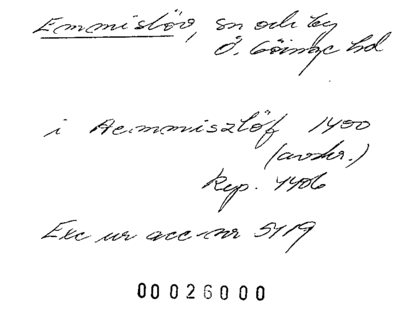 Emmislöv, sn och by
Ö. Göinge hd
i Aemmiszlöf 1400
(avskr.)
Rep. 1406
Exc ur acc-nr 5719
00026000